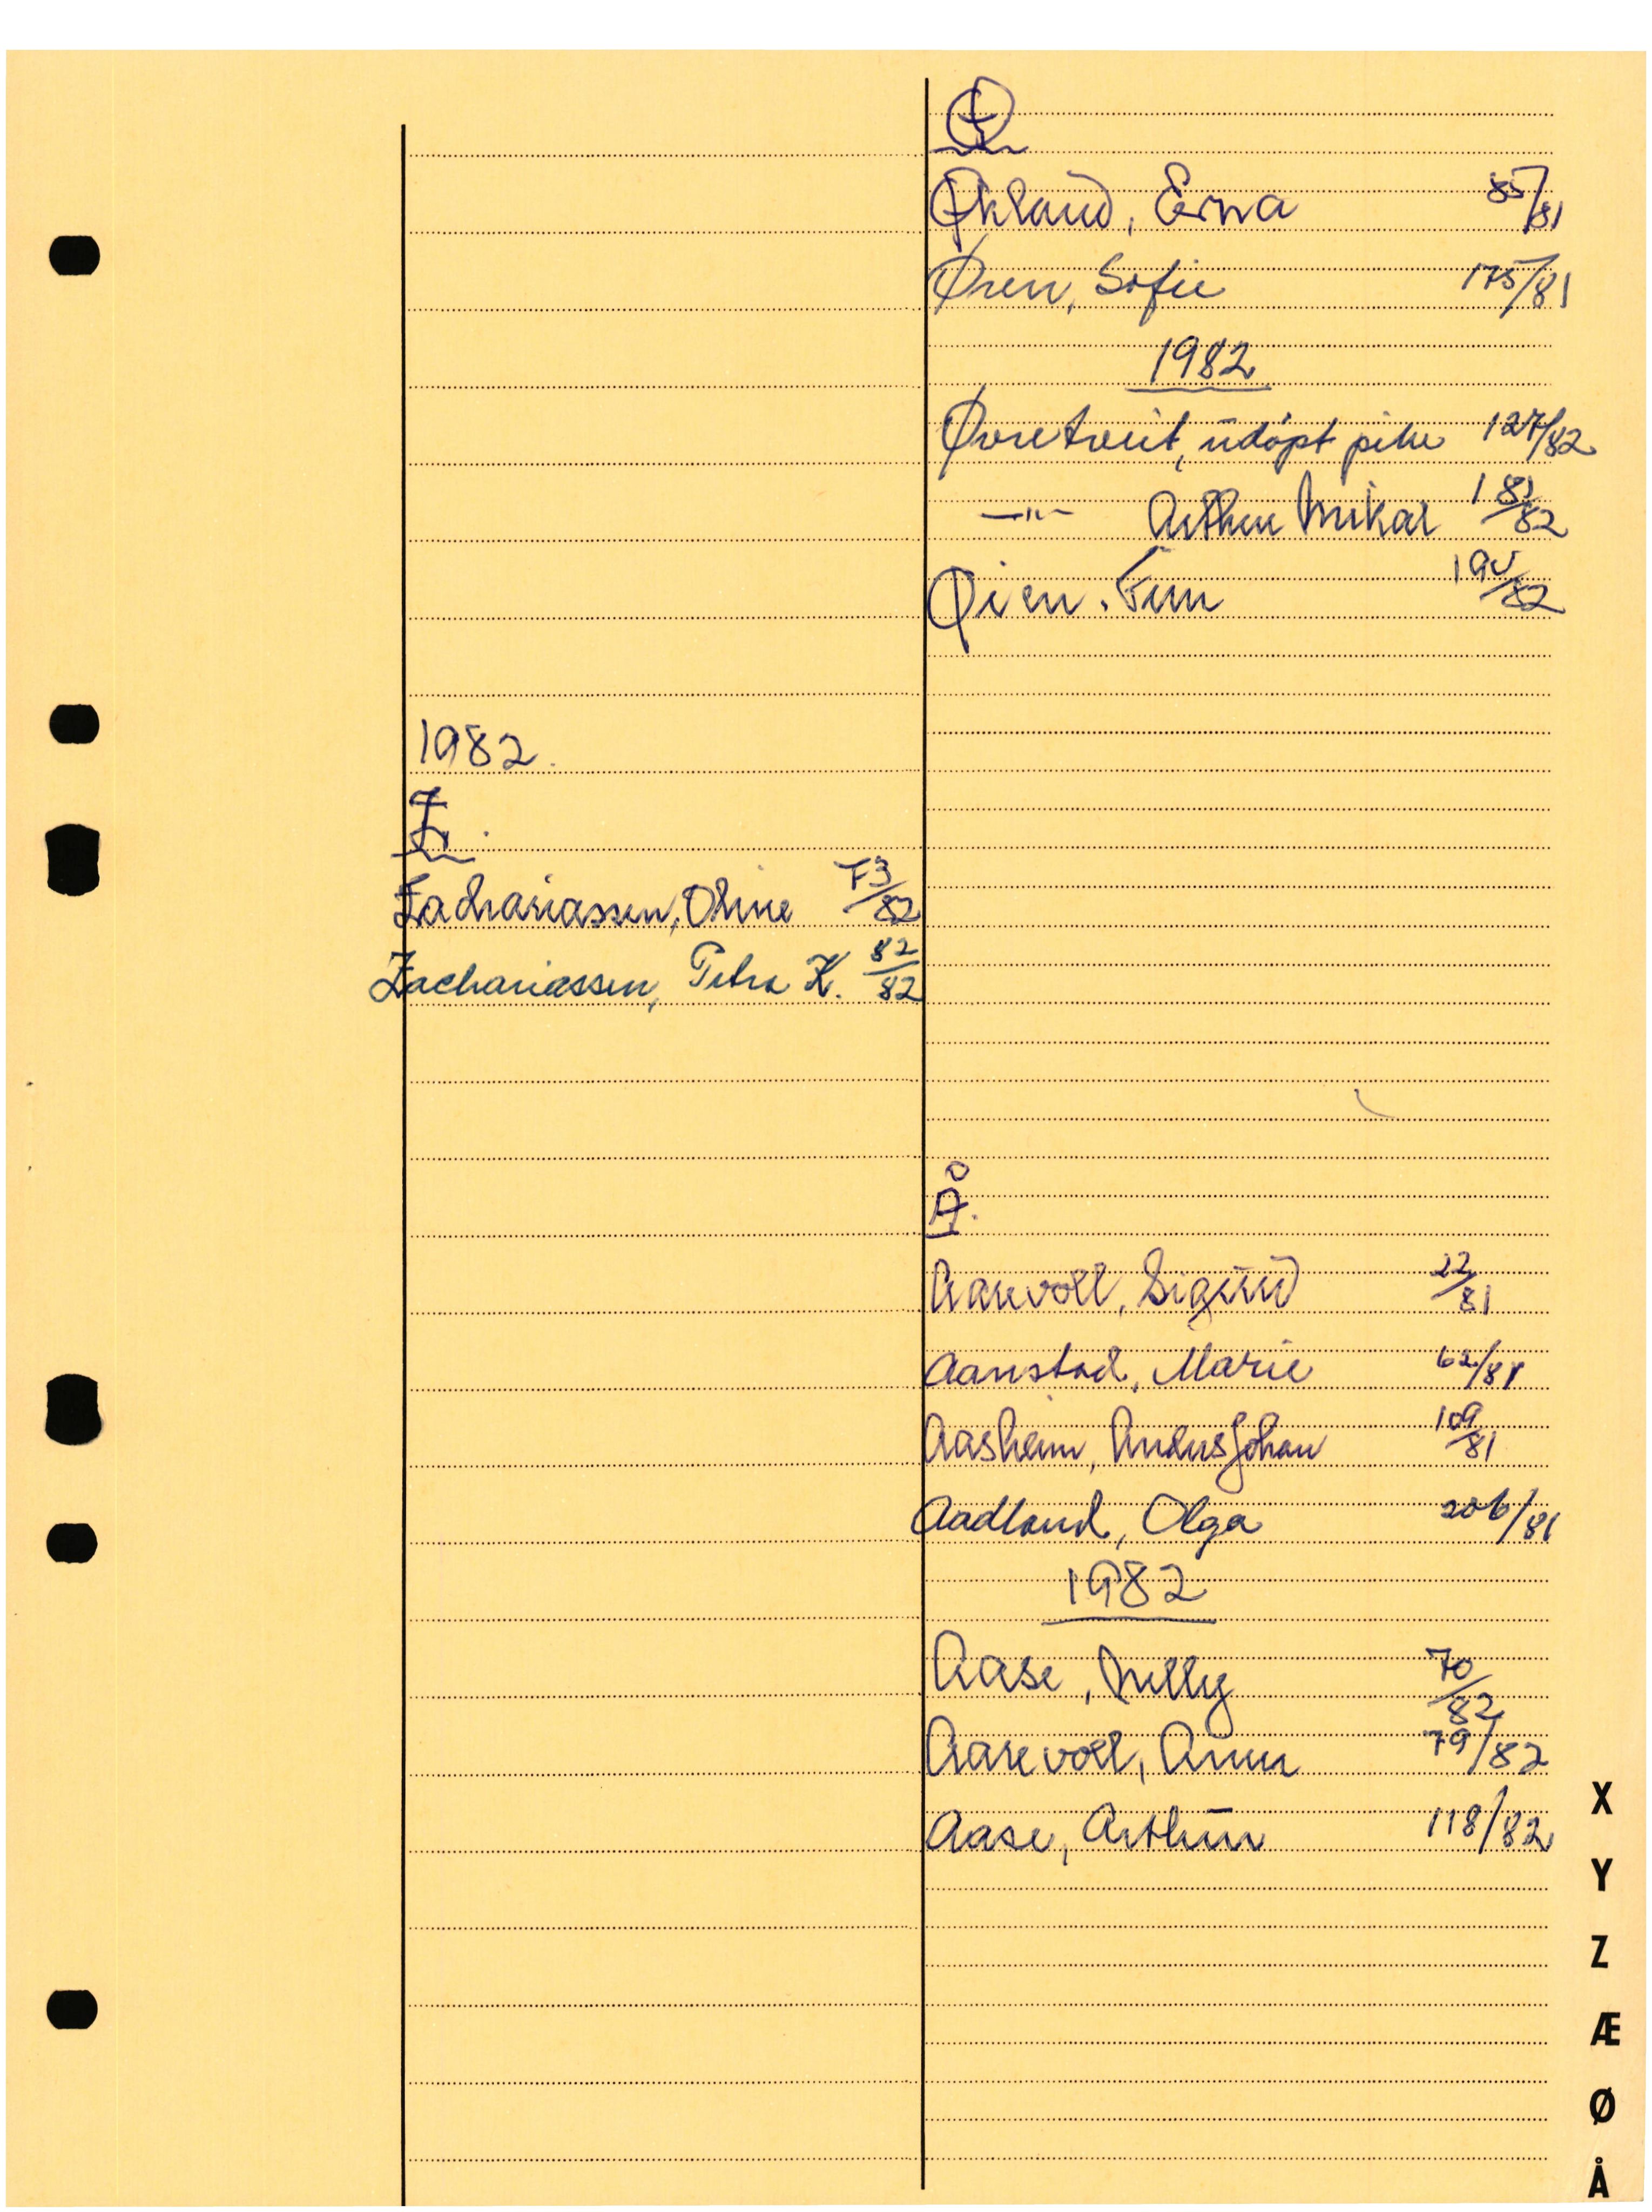 1982.
Z.
Zachariassen, Oline 73/82
Zachariassen, Petra K. 82/82
Ø
Økland, Erna 85/81
Øren, Sofie 175/81
1982
Øvretveit, udøpt pike 127/82
—"— Arthur Mikal 181/82
Øien. Finn 190/82
Å.
Aarevoll, Sigurd 22/81
Aanstad, Marie 62/81
Aasheim, Anders Johan 109/81
Aadland, Olga 206/81
1982
Aase, Nelly 70/82
Aarevoll, Anna 79/82
Aase, Arthur 118/82
X
Y
Z
Æ
Ø
Å